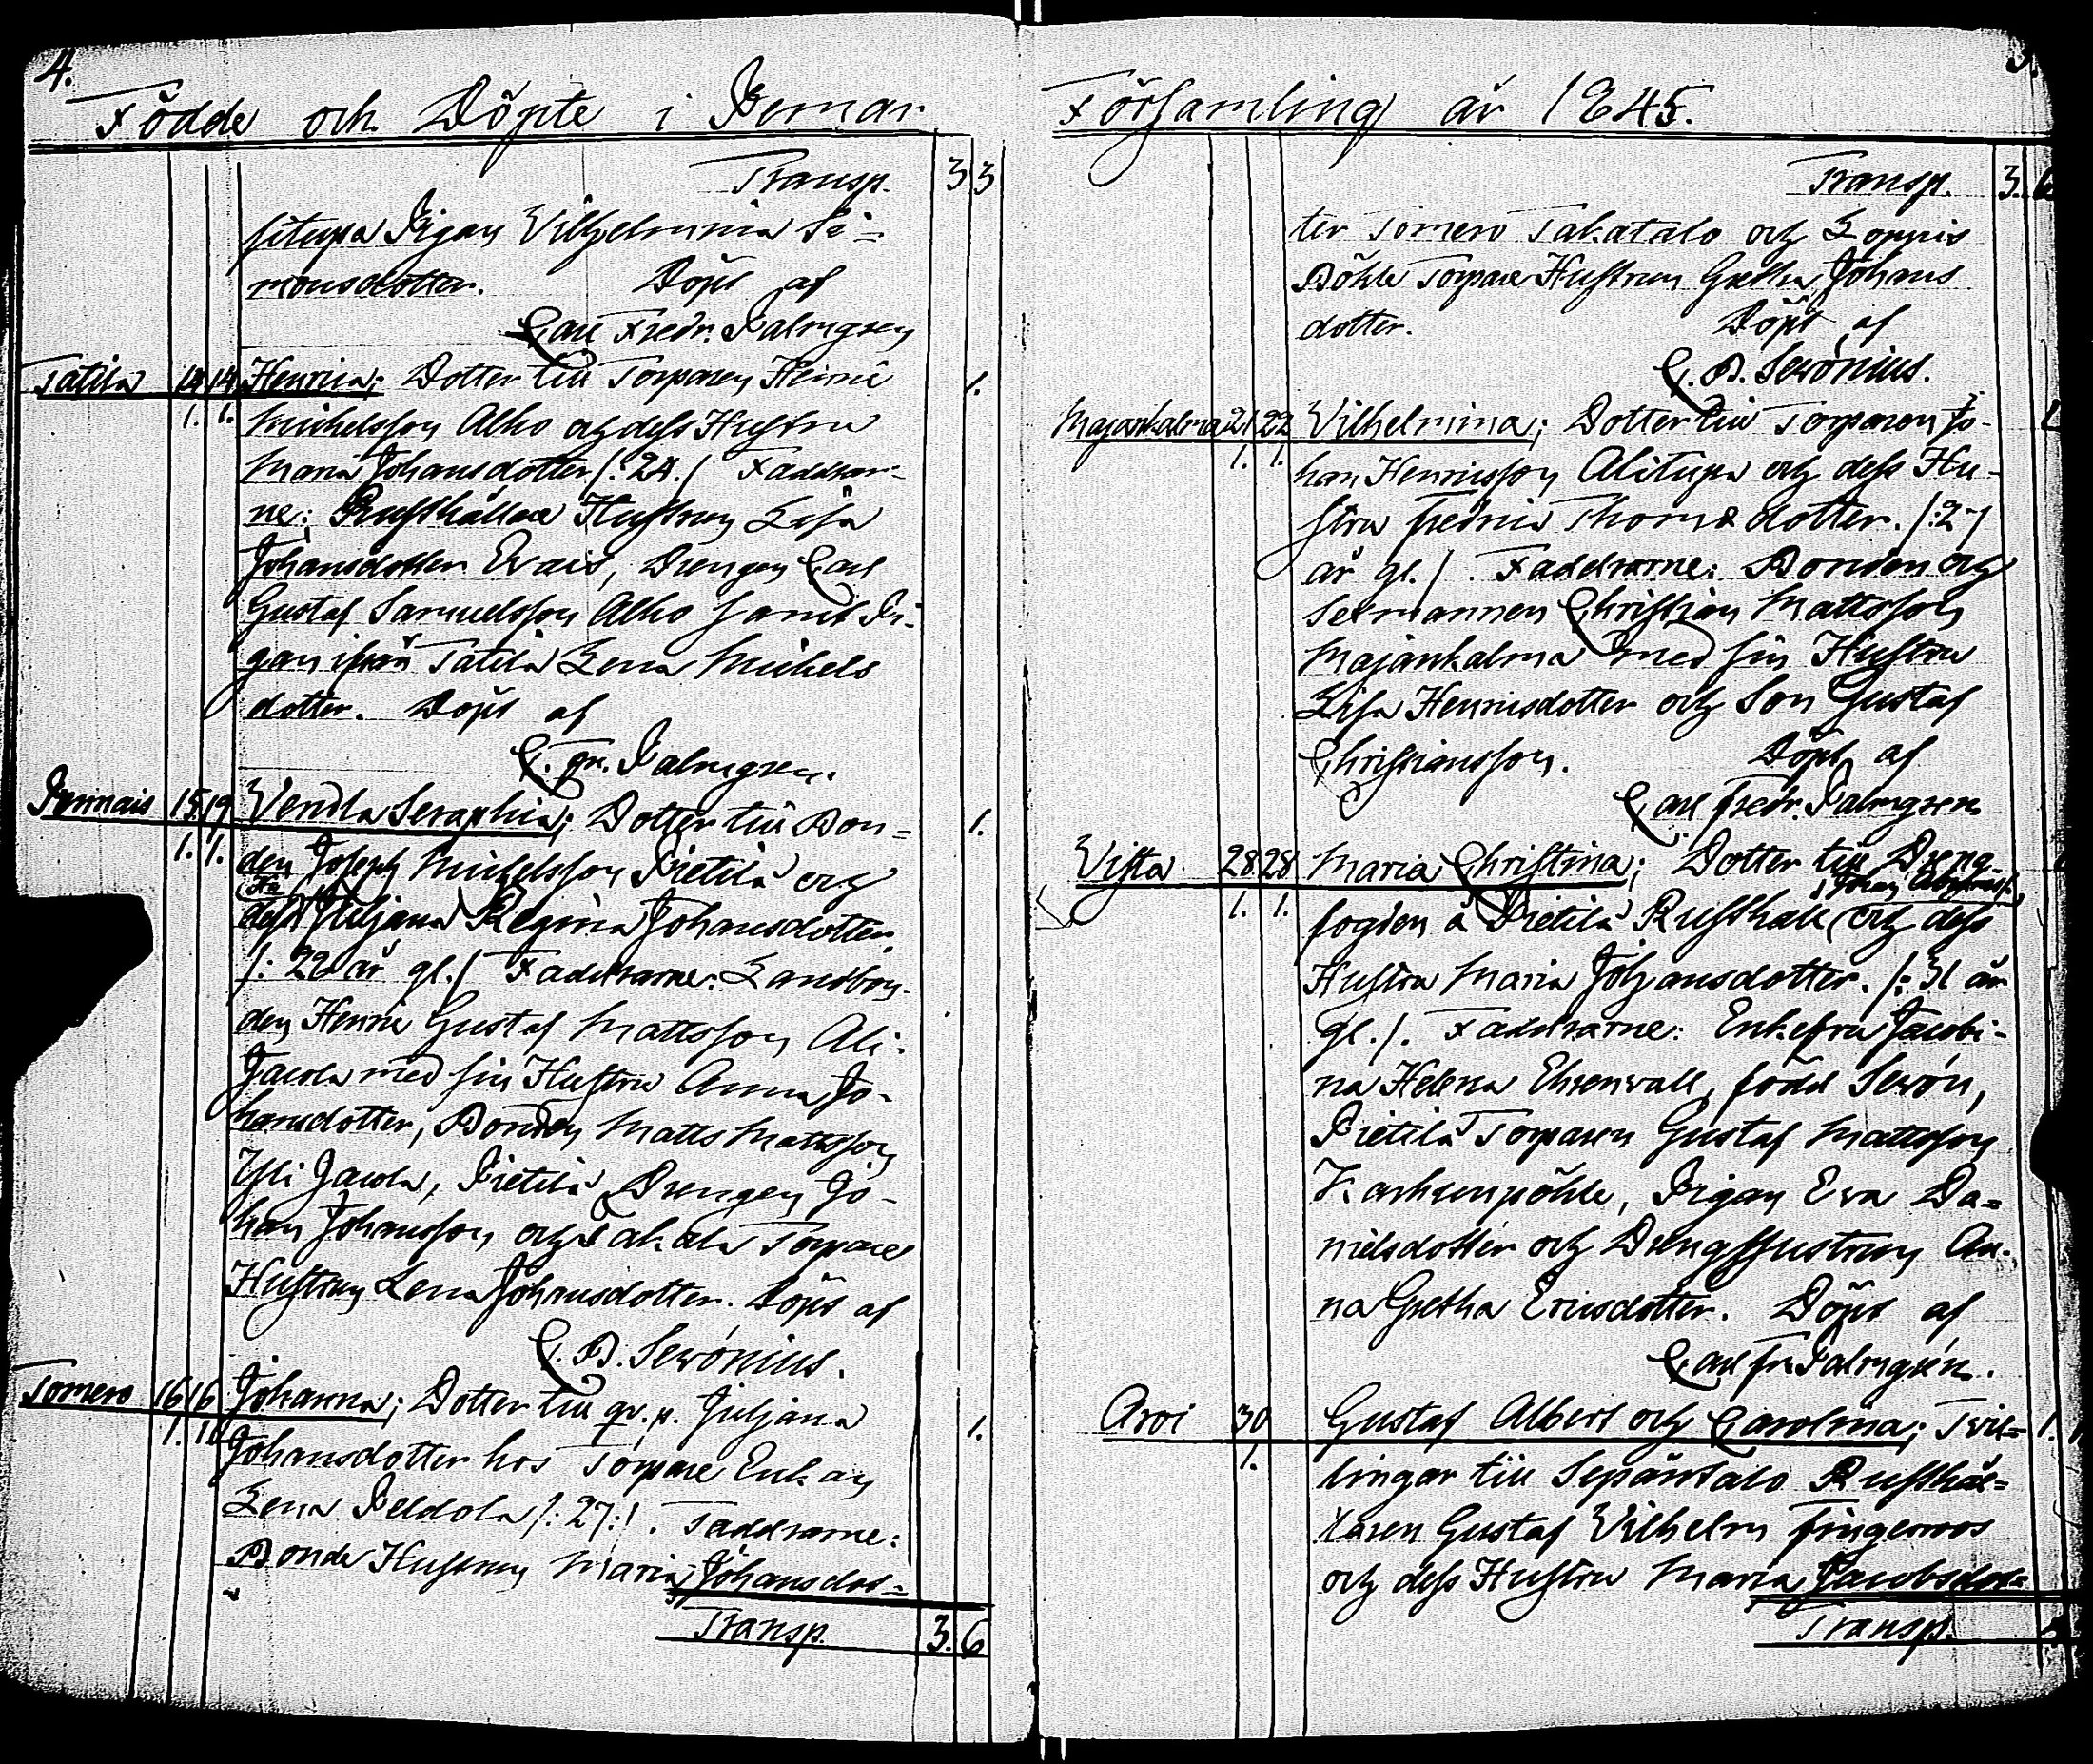 4.
Födde och Döpte i Pemar
Transp. 3 3
situpa Pigan Vilhelmina Si=
monsdotter. Döpt af
Carl Fredr. Palmgren
Tatila 14 14 Henrica; Dotter till Torparen Henric 1.
1. 1. Michelsson Alho och dess Hustru
Maria Johansdotter /: 24. / Faddrar-
ne: Rusthållare Hustrun Lisa
Johansdotter Evais, Drengen Carl
Gustaf Samuelsson Alho samt Pi-
gan ifrån Tatila Lena Michels
dotter. Döpt af
C. Fr. Palmgren.
15 19 Vendla Seraphia; Dotter till Bon= 1.
1. 1. den Joseph Michelsson Pietilä och
dess Juljana Regina Johansdotter
/: 22 år gl. / Faddrarne: Landbon-
den Henric Gustaf Mattsson Ali-
Jacola med sin Hustru Anna Jo-
hansdotter, Bonden Matts Mattsson
Yli Jacola, Pietilä Drengen Jo-
han Johansson och Torpare
Hustrun Lena Johansdotter. Döpt af
C. B. Serónius.
Tomero 16 16 Johanna; Dotter till qv. p. Juljana 1.
1. 1. Johansdotter hos Torpare Enkan
Lena Peldola /: 27: /. Faddrarne:
Bonde Hustrun Maria Johansdot=
Transp. 3. 6
Församling år 1845.
Transp. 3. 6
ter Tomero Takatalo och
Böhle Torpare Hustrun Gretha Johans
dotter. Döpt af
C. B. Serónius.
Majankalma 21 22 Vilhelmina; Dotter till Torparen Jo-
1. 1. han Henricsson Alitupa och dess Hu-
stru Fredrica Thomasdotter. /: 27
år gl. /. Faddrarne: Bonden och
Sexmannen Christian Mattsson
Majankalma med sin Hustru
Lisa Henricsdotter och Son Gustaf
Christiansson. Döpt af
Carl Fredr. Palmgren
Vista 28 28 Maria Christina; Dotter till Dreng-
1. 1. fogden å Pietilä Rusthåll och dess
Hustru Maria Johansdotter. /: 31 år
gl. /. Faddrarne: Enkefru Jacobi-
na Helena Ehrenvall, född Serón,
Pietilä Torparen Gustaf Mattsson
Karhunpöhle, Pigan Eva Da=
nielsdotter och Drenghustrun An-
na Gretha Ericsdotter. Döpt af
Carl Fr. Palmgrén.
Arvi 30 Gustaf Albert och Carolina; Tvil= 1. 1
1. lingar till Sepänsalo Rusthål=
laren Gustaf Vilhelm Fingerroos
och dess Hustru Maria Jacobsdot=
Transp.